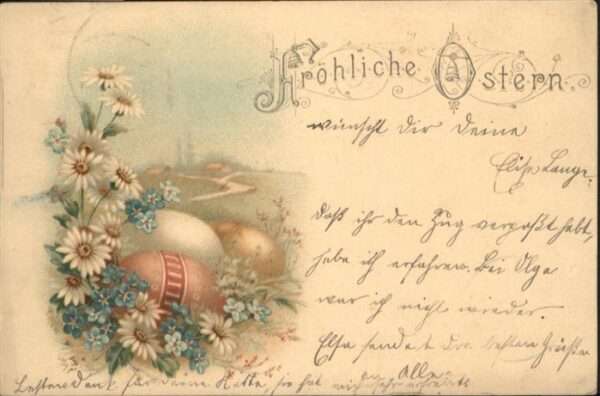 Fröhliche Ostern
wünscht Dir Deine
Elise Lange.
Daß ihr den Zug verpaßt habt,
habe ich erfahren. Bei Olga
war ich nicht wieder.
Elsa sendet Dir besten Grüßen
an Alle.
Besten Dank für deine Karte, sie hat mich sehr erfreut